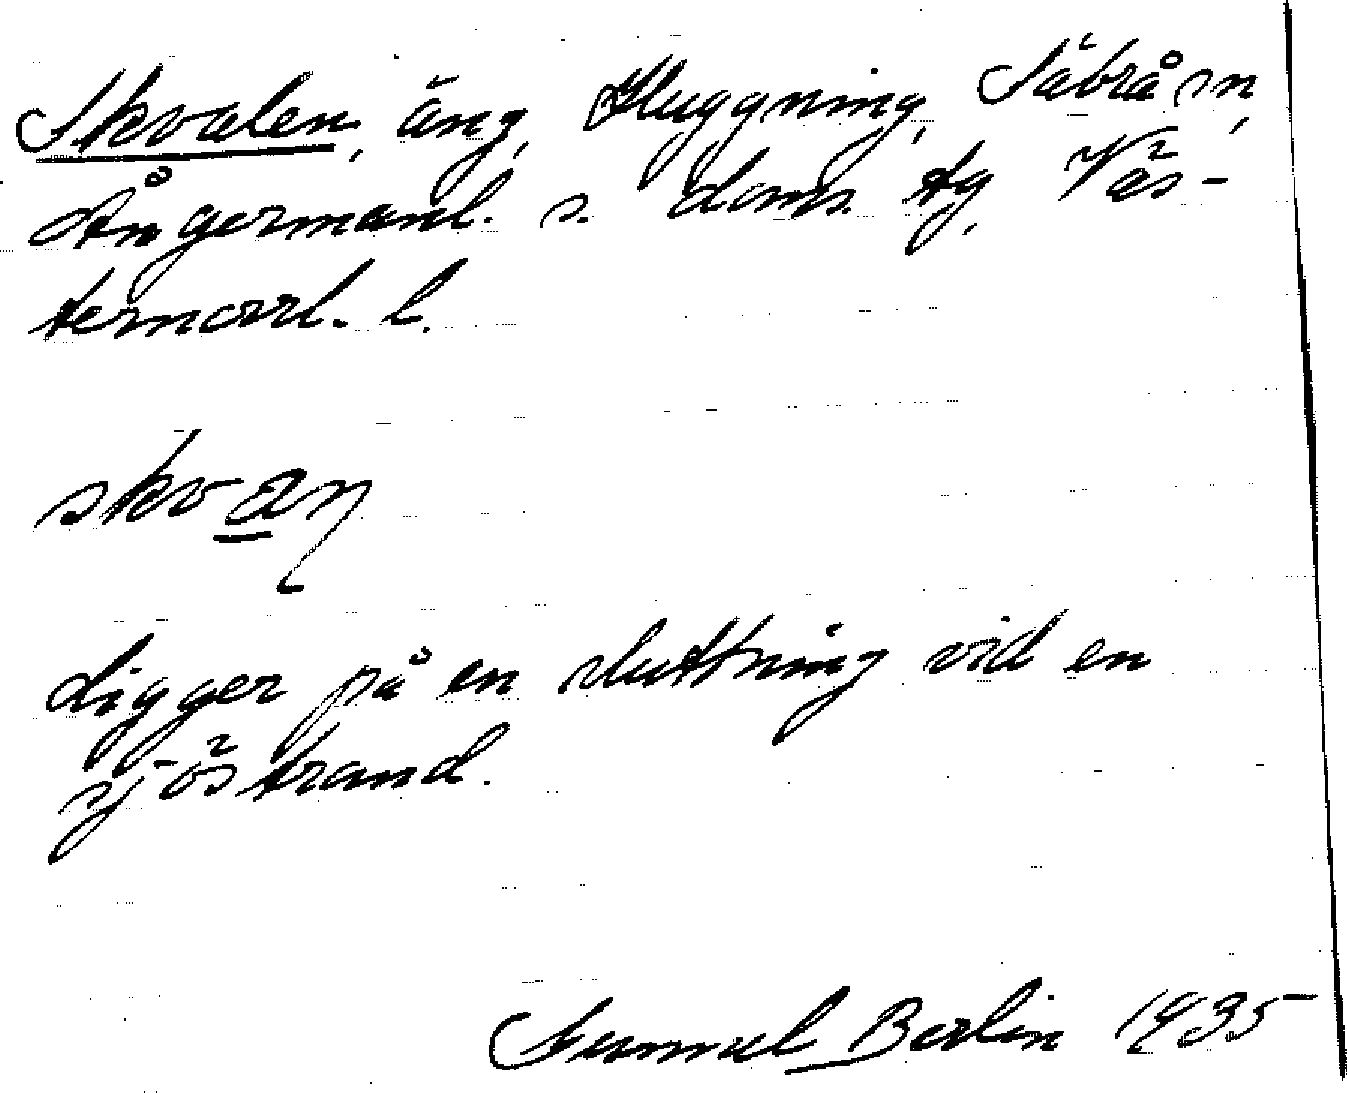 Skvalen, äng, Häggning, Säbrå sn,
Ångermanl. s. doms. tg, Väs-
ternorrl. l.
skvaŋ
Ligger på en sluttning vid en
sjöstrand.
Gunnul Berlin 1935